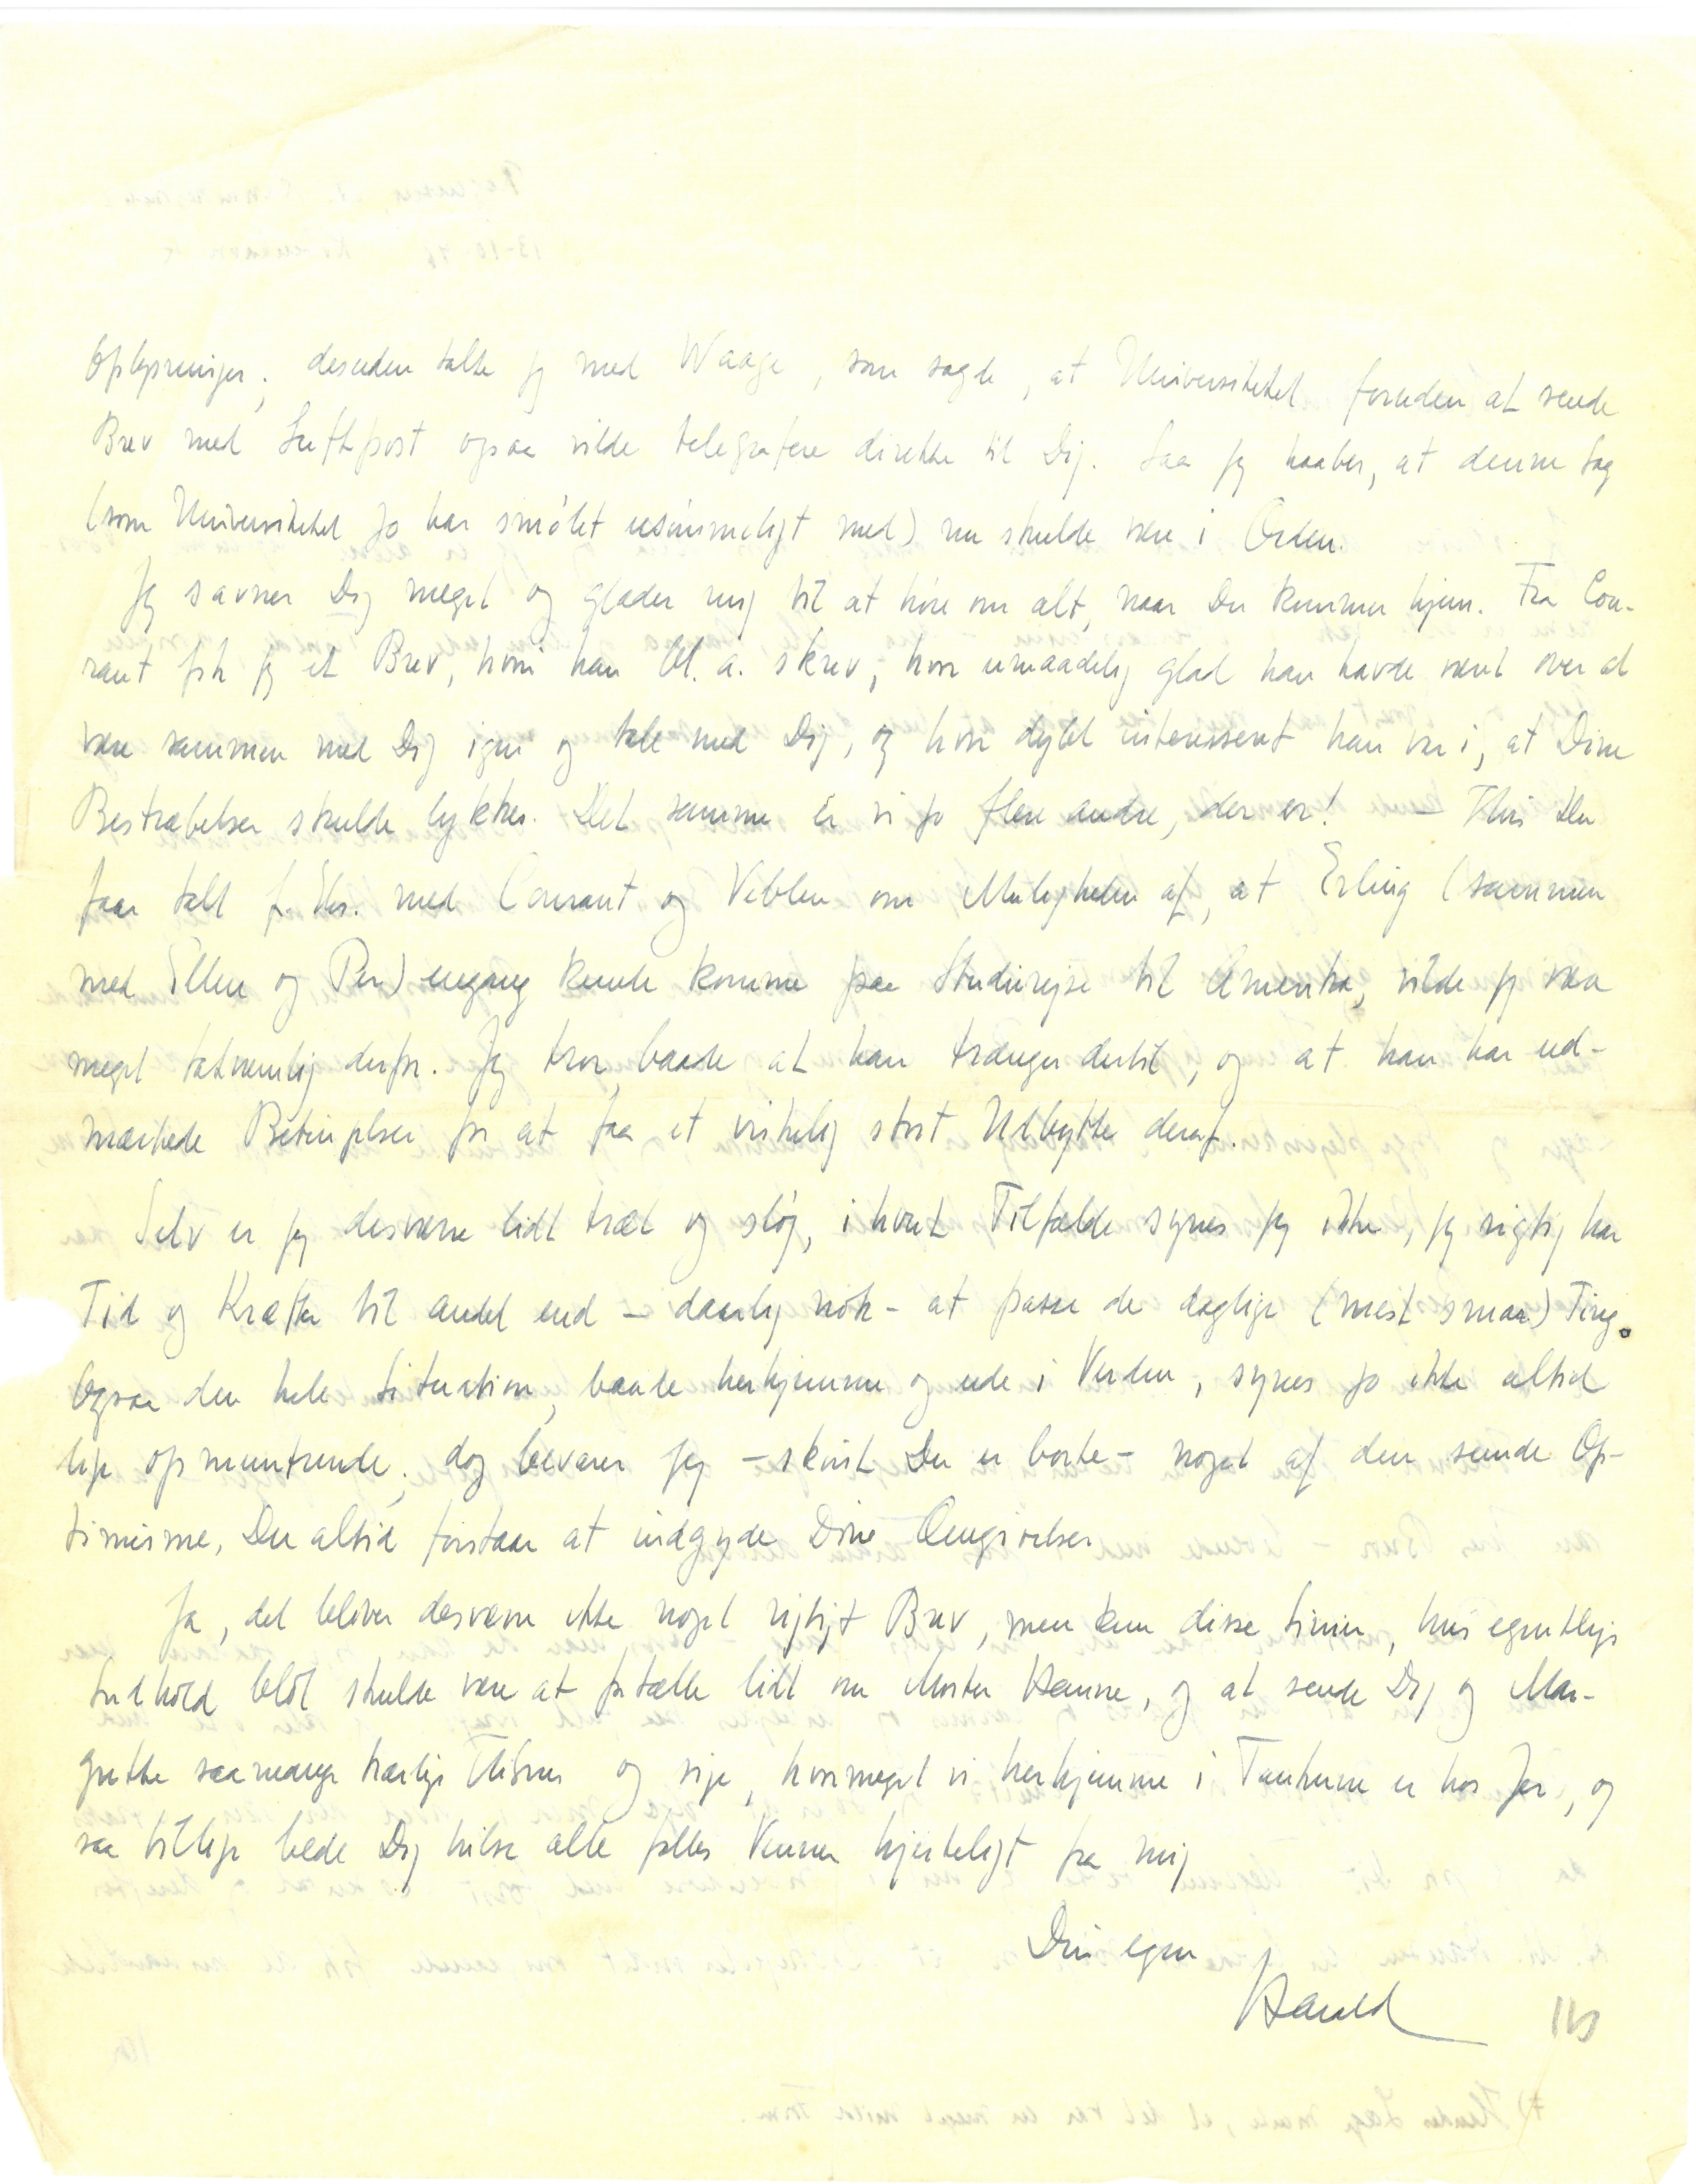 Oplysninger; desuden talte jeg med Waage, som sagde, at Universitetet foruden at sende
Brev med Luftpost ogsaa vilde telegrafere direkte til Dig. Saa jeg haaber, at denne Sag
(som Universitetet jo har smølet usømmeligt med) nu skulde være i Orden.
Jeg savner Dig meget og glæder mig til at høre om alt, naar Du kommer hjem. Fra Cou-
rant fik jeg et Brev, hvori han bl. a. skrev, hvor umaadelig glad han havde været over at
være sammen med Dig igen og tale med Dig, og hvor dybt interesseret han var i, at Dine
Bestræbelser skulde lykkes. Det samme er vi jo flere andre, der er! – Hvis Du
faar talt f. Eks. med Courant og Veblen om Muligheden af, at Erling (sammen
med Ellen og Per) engang kunde komme paa Studierejse til Amerika, vilde jeg være
meget taknemlig derfor. Jeg tror, baade at han trænger dertil, og at han har ud-
mærkede Betingelser for at faa et virkelig stort Udbytte deraf.
Selv er jeg desværre lidt træt og sløj, i hvert Tilfælde synes jeg ikke, jeg rigtig har
Tid og Kræfter til andet end – daarlig nok – at passe de daglige (mest smaa) Ting.
Ogsaa den hele Situation, baade herhjemme og ude i Verden, synes jo ikke altid
lige opmuntrende; dog bevarer jeg – skønt Du er borte – noget af den sunde Op-
timisme, Du altid forstaar at indgyde Dine Omgivelser
Ja, det bliver desværre ikke noget rigtigt Brev, men kun disse Linier, hvis egentlige
Indhold blot skulde være at fortælle lidt om Moster Hanne, og at sende Dig og Mar-
grethe saa mange kærlige Hilsner og sige, hvor meget vi herhjemme i Tankerne er hos Jer, og
saa tillige bede Dig hilse alle fælles Venner hjerteligt fra mig
Din egen
Harald